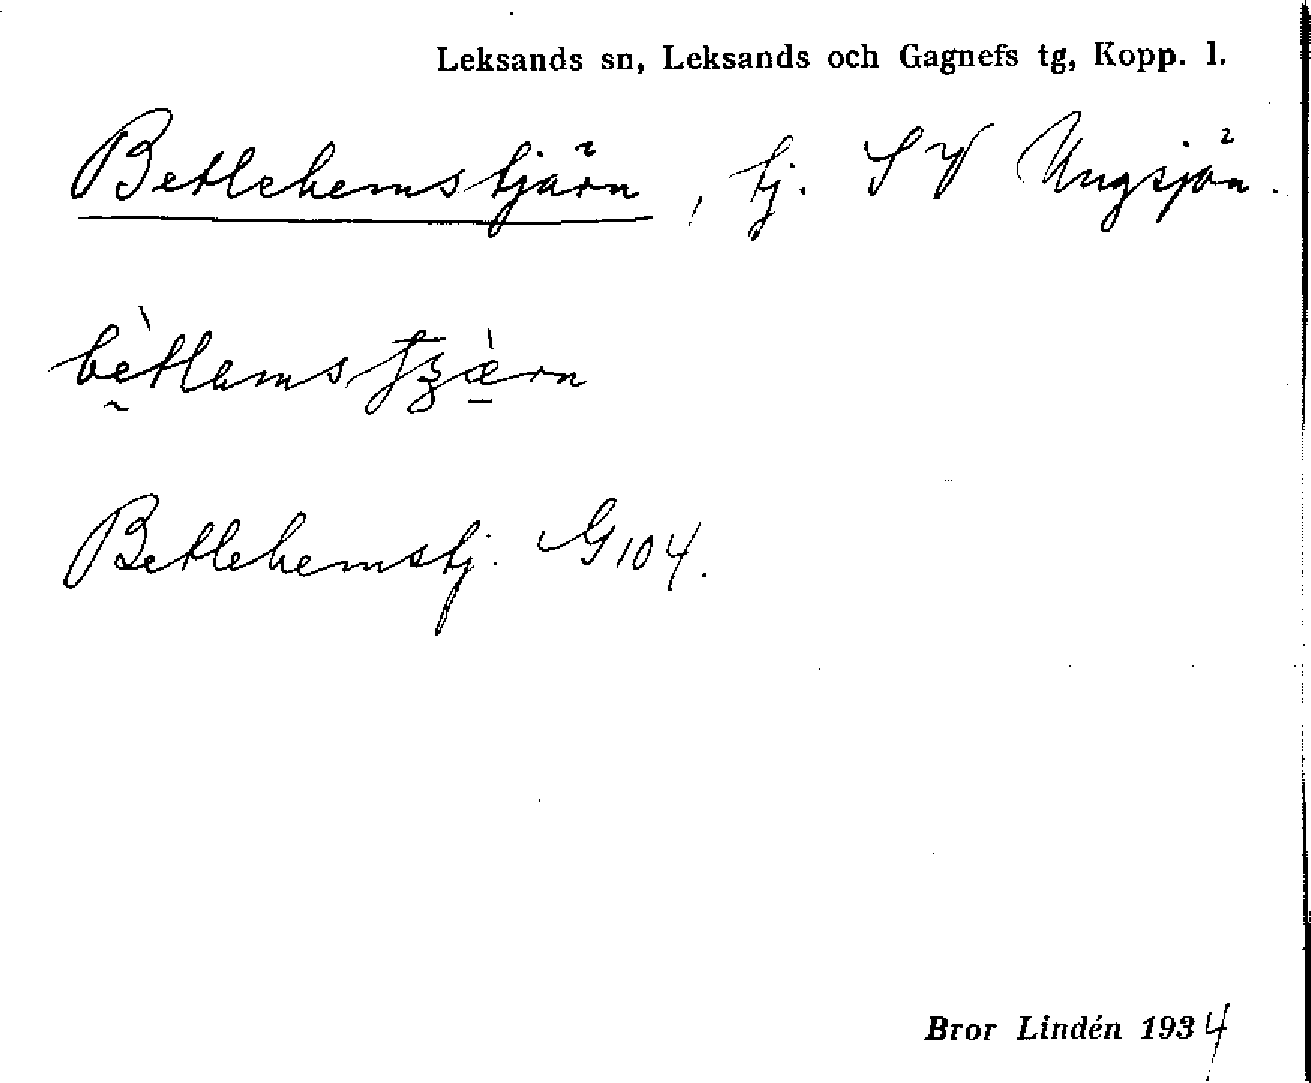 Leksands sn, Leksands och Gagnefs tg, Kopp. l.
Betlehemstjärn, tj. SV Ungsjön.
bètlamstʒæ̀rn
Betlehemstj. G104.
Bror Lindén 1934